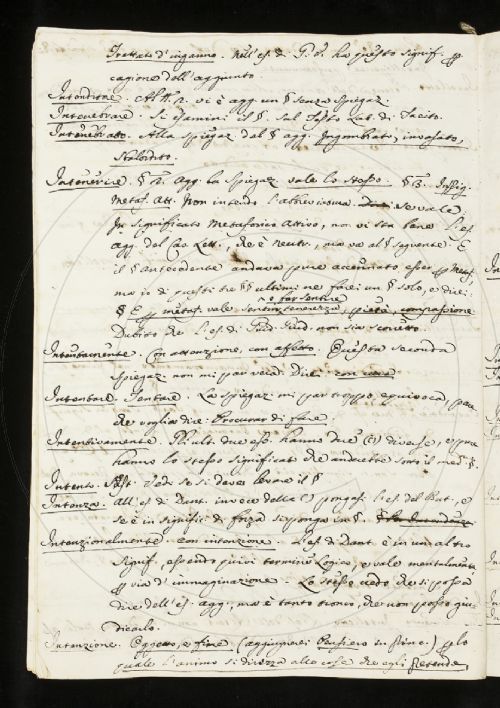 Trattato d'inganno. Nell'es. di G. V. ha questo signif. p
cagione dell'aggiunto
Intenditore. Al §. 2. vi è agg. un § senza spiegaz.
Intenebrare. Si esamini il §. sul Testo Lat. di Tacito.
Intenebrato. Alla spiegaz. dal § agg. Ingombrato, invasato,
Stalordito.
Intenerire. § 2. agg. la spiegaz. vale lo stesso. § 3. In sig.
Metaf. Att. Non intendo l'abbreviatura. se vale
In significato Metaforico Attivo, non vi sta bene l'es.
agg. del Caro Lett., che è neutr., ma va al § seguente. E
il § antecedente andava pure accennato esser p Metaf.
ma io di questi tre §§ ultimi ne farei un § solo, e direi:
o far sentire
§ E p metaf. vale sentir tenerezza, pietà, compassione
Dubito che l'es. di Guid. Giud. non sia scorretto.
Intentamente. Con attenzione, con affetto. Questa seconda
spiegaz. non mi par vera. Direi con cura
Intentare. Tentare. La spiegaz. mi par troppo equivoca, pare
che voglia dire: Procurar di fare.
Intentivamente. Gli ult. due es. hanno due (C) diverse, e pure
hanno lo stesso significato che andrebbe sotto il med. §.
Intento. Sust. Vede se si deve levare il §
Intenza. All'es. di Dant. invece della (C) pongasi l'es. del But., e
se è in signific. di forza si ponga in §.
Intenzionalmente. con intenzione. L'es. di Dant. è in un altro
signif., essendo quivi termine Logico, e vale mentalmente
p via d'immaginazione. Lo stesso credo che si possa
dire dell'es. agg., ma è tanto tronco, che non posso giu-
dicarlo.
Intenzione. Oggetto, e fine (aggiungerei Pensiero in fine.) p lo
quale l'animo si dirizza alle cose che egli pretende